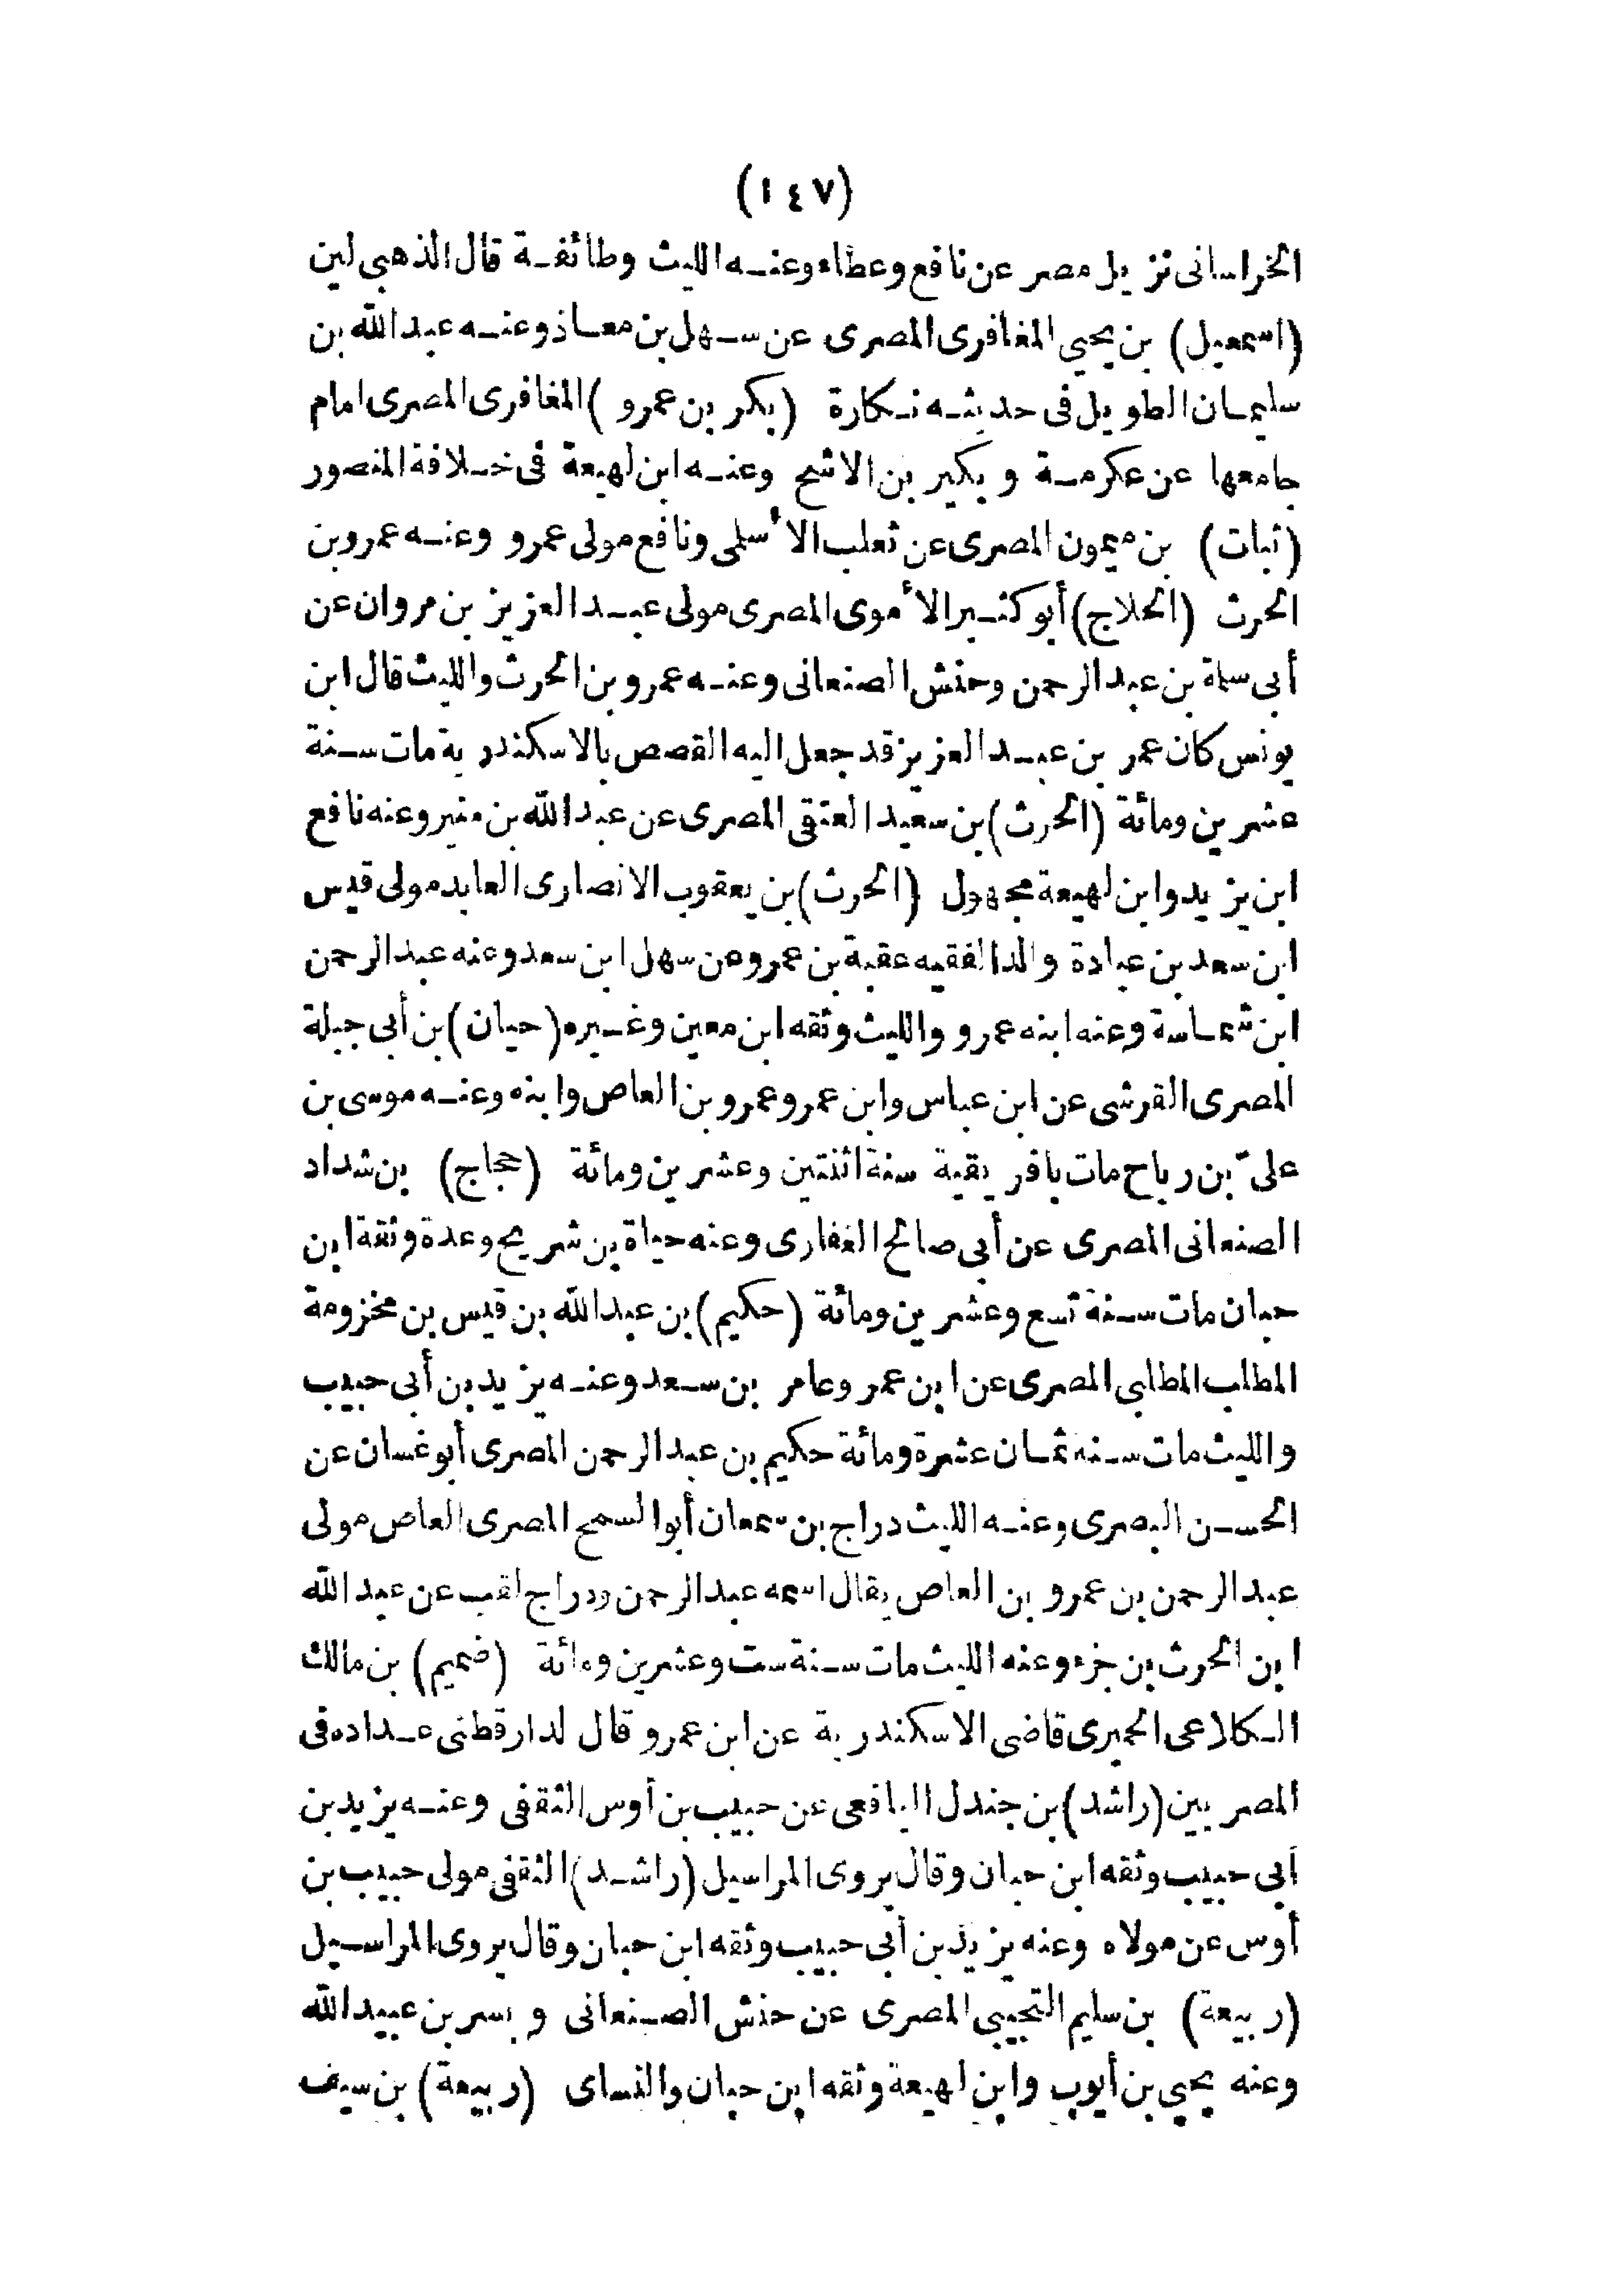 (١٤٧)
الخراسانى نزيل مصر عن نافع وعطاء وعنه الليث وطائفة قال الذهبي لين
(اسمعيل) بن يحيي المغافرى المصرى عن سهل بن معاذ وعنه عبد الله بن
سليمان الطويل فى حديثه نكارة (بكر بن عمرو) المغافرى المصرى امام
جامعها عن عكرمة وبكير بن الاشج وعنه ابن لهيعة فى خلافة المنصور
(ثبات) بن ميمون المصرى عن ثعلب الأسلمى ونافع مولى عمرو وعنه عمرو بن
الحرث (الحلاج) أبو كثير الأموى المصرى مولى عبد العزيز بن مروان عن
أبى سلمة بن عبد الرحمن وحنش الصنعانى وعنه عمرو بن الحرث والليث قال ابن
يونس كان عمر بن عبد العزيز قد جعل اليه القصص بالاسكندرية مات سنة
عشرين ومائة (الحرث) بن سعيد العتقى المصرى عن عبد الله بن منير وعنه نافع
ابن يزيد وابن لهيعة مجهول (الحرث) بن يعقوب الانصارى العابد مولى قيس
ابن سعد بن عبادة والد الفقيه عقبة بن عمرو عن سهل ابن سعد وعنه عبد الرحمن
ابن شماسة وعنه ابنه عمرو والليث وثقه ابن معين وغيره (حيان) بن أبى جبلة
المصرى القرشى عن ابن عباس وابن عمرو وعمرو بن العاص وابنه وعنه موسى بن
علىّ بن رباح مات بافريقية سنة اثنتين وعشرين ومائة (حجاج) بن شداد
الصنعانى المصرى عن أبى صالح الغفارى وعنه حياة بن شريح وعدة وثقة ابن
حبان مات سنة تسع وعشرين ومائة (حكيم) بن عبد الله بن قيس بن مخزومة
المطلب المطلبى المصرى عن ابن عمر وعامر بن سعد وعنه يزيد بن أبى حبيب
والليث مات سنه ثمان عشرة ومائة حكيم بن عبد الرحمن المصرى أبو غسان عن
الحسن البصرى وعنه الليث دراج بن سمعان أبو السمح المصرى العاص مولى
عبد الرحمن بن عمرو بن العاص يقال اسمه عبد الرحمن ودراج لقب عن عبد الله
ابن الحرث بن جزء وعنه الليث مات سنة ست وعشرين ومائة (ضميم) بن مالك
الكلاعى الحميرى قاضى الاسكندرية عن ابن عمرو قال لدارقطنى عداده فى
المصريين (راشد) بن جندل اليافعى عن حبيب بن أوس الثقفى وعنه يزيد بن
أبى حبيب وثقه ابن حبان وقال يروى المراسيل (راشد) الثقفى مولى حبيب بن
أوس عن مولاه وعنه يزيد بن أبى حبيب وثقه ابن حبان وقال يروى المراسيل
(ربيعة) بن سليم التجيبى المصرى عن حنش الصنعانى وبسر بن عبيد الله
وعنه يحيي بن أيوب وابن لهيعة وثقه ابن حبان والنساى (ربيعة) بن سيف